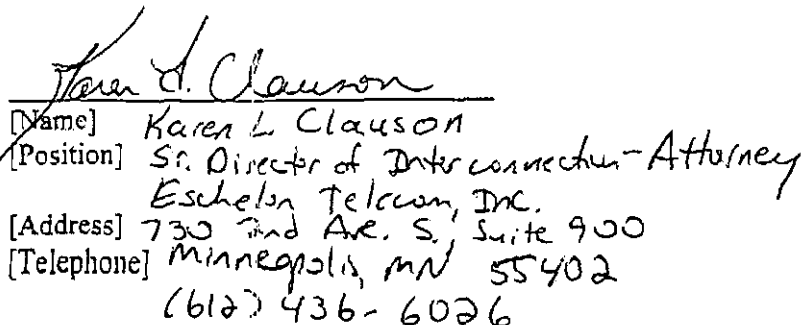 Karen L. Clauson
[Name] Karen L Clauson
[Position] Sr. Director of Interconnection - Attorney
Eschelon Telecom, Inc.
[Address] 730 2nd Ave. S., Suite 900
[Telephone] Minneapolis, MN 55402
(612) 436-6026